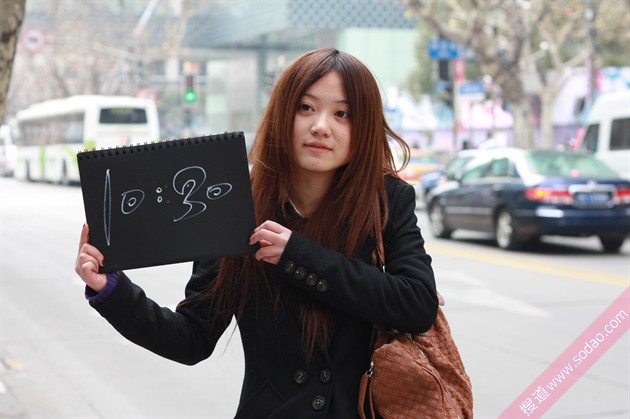 10:30
搜道www.sodao.com